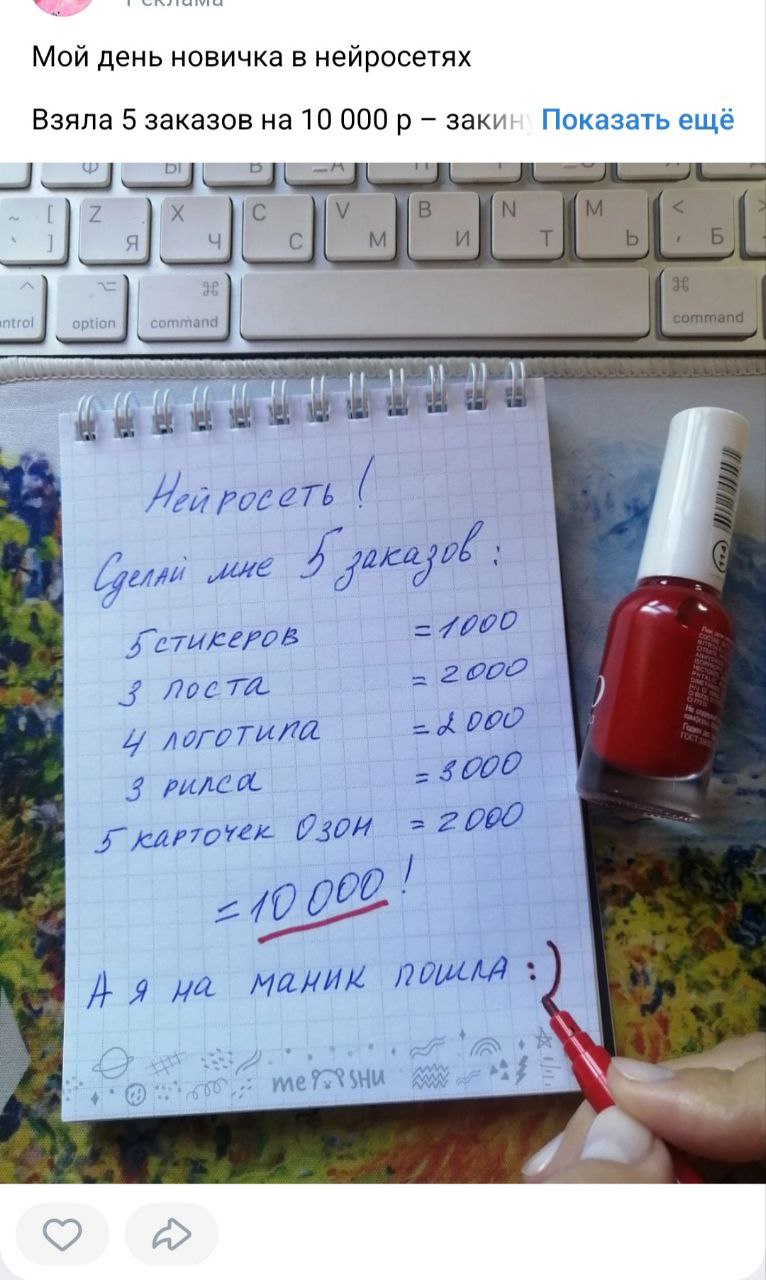 Реклама
Мой день новичка в нейросетях
Взяла 5 заказов на 10 000 р – закин Показать ещё
Ф Ы В А П
~ [ Z X C V B N M < >
` ] Я Ч С М И Т Ь , Б
control option command command
Нейросеть!
Сделай мне 5 заказов:
5 стикеров = 1000
3 поста = 2000
4 логотипа = 2000
3 рилса = 3000
5 карточек Озон = 2000
= 10 000!
А я на маник пошла :)
meSHU